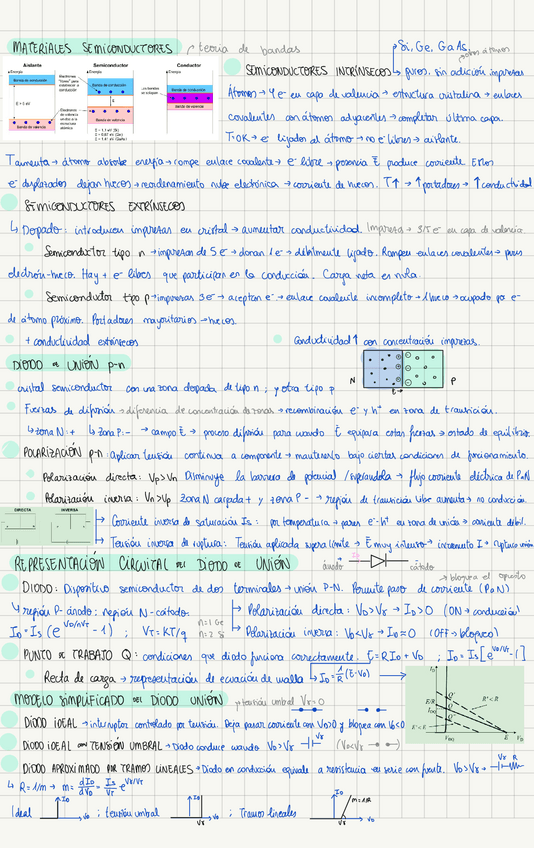 MATERIALES SEMICONDUCTORES → teoría de bandas
Si, Ge, GaAs
Aislante Semiconductor Conductor
Energía Energía Energía
Banda de conducción
Banda de valencia
SEMICONDUCTORES INTRÍNSECOS → puros, sin adición impurezas
Átomos → 4 e⁻ en capa de valencia → estructura cristalina → enlaces
covalentes con átomos adyacentes → completar última capa.
T=0K → e⁻ ligados al átomo → no e⁻ libres → aislante.
T aumenta → átomo absorbe energía → rompe enlace covalente → e⁻ libre → presencia E produce corriente. Estos
e⁻ desplazados dejan huecos → reordenamiento nube electrónica → corriente de huecos. T↑ → ↑portadores → ↑conductividad
SEMICONDUCTORES EXTRÍNSECOS
↳ Dopado: introducir impurezas en cristal → aumentar conductividad. Impureza → 3/5 e⁻ en capa de valencia.
Semiconductor tipo n → impurezas de 5 e⁻ → donan 1 e⁻ → débilmente ligado. Rompen enlaces covalentes → pares
electrón-hueco. Hay + e⁻ libres que participan en la conducción. Carga neta es nula.
Semiconductor tipo p → impurezas 3e⁻ → aceptan e⁻ → enlace covalente incompleto → 1 hueco → ocupado por e⁻
de átomo próximo. Portadores mayoritarios → huecos.
+ conductividad extrínsecos Conductividad ↑ con concentración impurezas.
DIODO de UNIÓN p-n
N P
E→
cristal semiconductor con una zona dopada de tipo n, y otra tipo p
Fuerzas de difusión → diferencia de concentración de zonas → recombinación e⁻ y h⁺ en zona de transición.
↳ zona N: + ↳ zona P: - → campo E → proceso difusión para cuando E equipara estas fuerzas → estado de equilibrio.
POLARIZACIÓN p-n: Aplicar tensión continua a componente → mantenerlo bajo ciertas condiciones de funcionamiento.
Polarización directa: Vp>Vn Disminuye la barrera de potencial /superándola → flujo corriente eléctrica de P a N
Polarización inversa: Vn>Vp zona N cargada + y zona P - → región de transición libre aumenta → no conducción.
DIRECTA INVERSA
Corriente inversa de saturación Is: por temperatura → pares e⁻-h⁺ en zona de unión → corriente débil.
Tensión inversa de ruptura: Tensión aplicada supera límite → E muy intenso → incremento I → ruptura unión
REPRESENTACIÓN CIRCUITAL del DIODO de UNIÓN
ánodo cátodo
DIODO: Dispositivo semiconductor de dos terminales → unión P-N. Permite paso de corriente (P a N)
→ bloquea el opuesto
↳ región P-ánodo; región N-cátodo.
Polarización directa: VD>VS → ID>0 (ON → conducción)
ID = Is (e^VD/nVT - 1) ; VT = KT/q n=1 Ge n=2 Si
Polarización inversa: VD<VS → ID≈0 (OFF → bloqueo)
PUNTO de TRABAJO Q: condiciones que diodo funciona correctamente. E = R ID + VD ; ID = Is [e^VD/VT - 1]
Recta de carga → representación de ecuación de malla → ID = 1/R (E-VD)
MODELO SIMPLIFICADO del DIODO UNIÓN → tensión umbral Vγ=0
DIODO IDEAL → interruptor controlado por tensión. Deja pasar corriente con VD>0 y bloquea con VD<0
DIODO IDEAL con TENSIÓN UMBRAL → Diodo conduce cuando VD>Vγ (VD<Vγ)
DIODO APROXIMADO POR TRAMOS LINEALES → Diodo en conducción equivale a resistencia en serie con fuente. VD>Vγ → Vγ R
↳ R = 1/m → m = dID/dVD = Is/VT e^Vγ/VT
Ideal ID VD ; tensión umbral ID Vγ VD ; Tramos lineales ID m=1/R Vγ VD